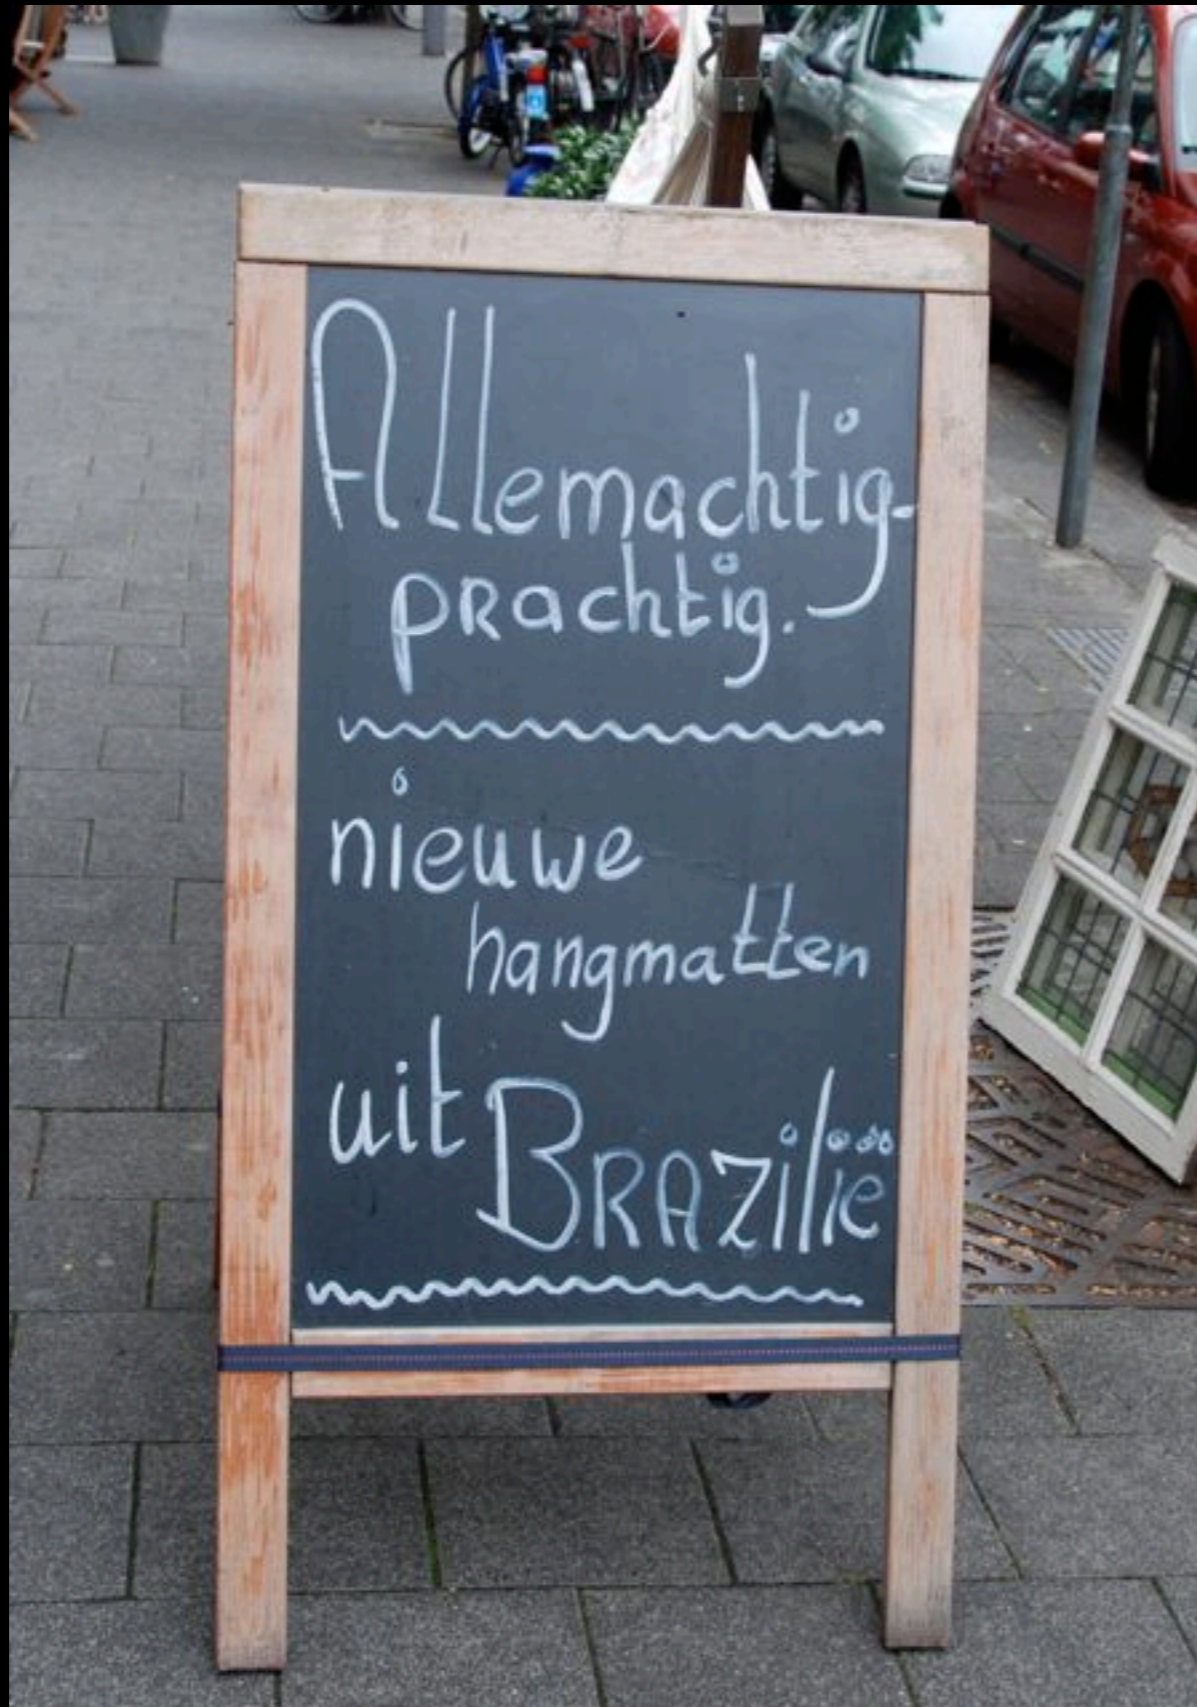 Allemachtig-
prachtig.
nieuwe
hangmatten
uit BRAZilië